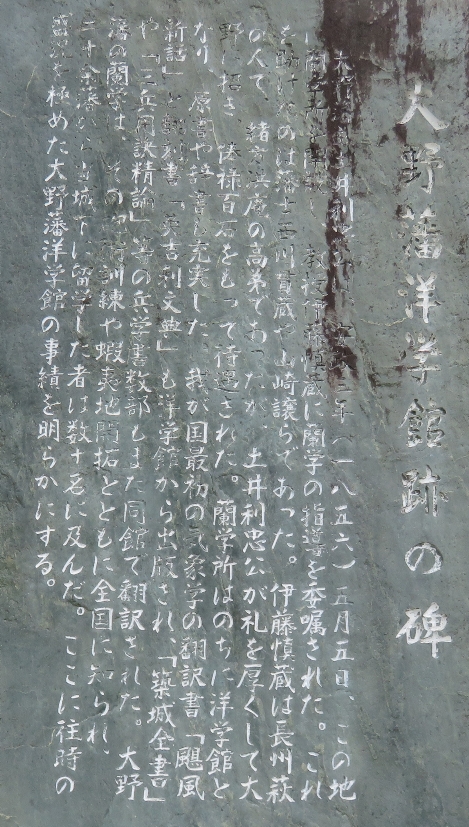 大野藩洋学館跡の碑
大野藩主土井利忠公は、安政三年（一八五六）五月五日、この地
に蘭学所を開設し、教授伊藤慎蔵に蘭学の指導を委嘱された。これ
を助けたのは藩士西川貫蔵や山崎譲らであった。伊藤慎蔵は長州萩
の人で、緒方洪庵の高弟であったが、土井利忠公が礼を厚くして大
野に招き、俸禄百石をもって待遇された。蘭学所はのちに洋学館と
なり、原書や辞書も充実した。我が国最初の気象学の翻訳書「颶風
新話」と翻刻書「英吉利文典」も洋学館から出版され、「築城全書」
や「三兵用訣精論」等の兵学書数部もまた同館で翻訳された。大野
藩の蘭学は、その 訓練や蝦夷地開拓とともに全国に知られ、
二十余藩から当城下に留学した者は数十名に及んだ。ここに往時の
盛況を極めた大野藩洋学館の事績を明らかにする。